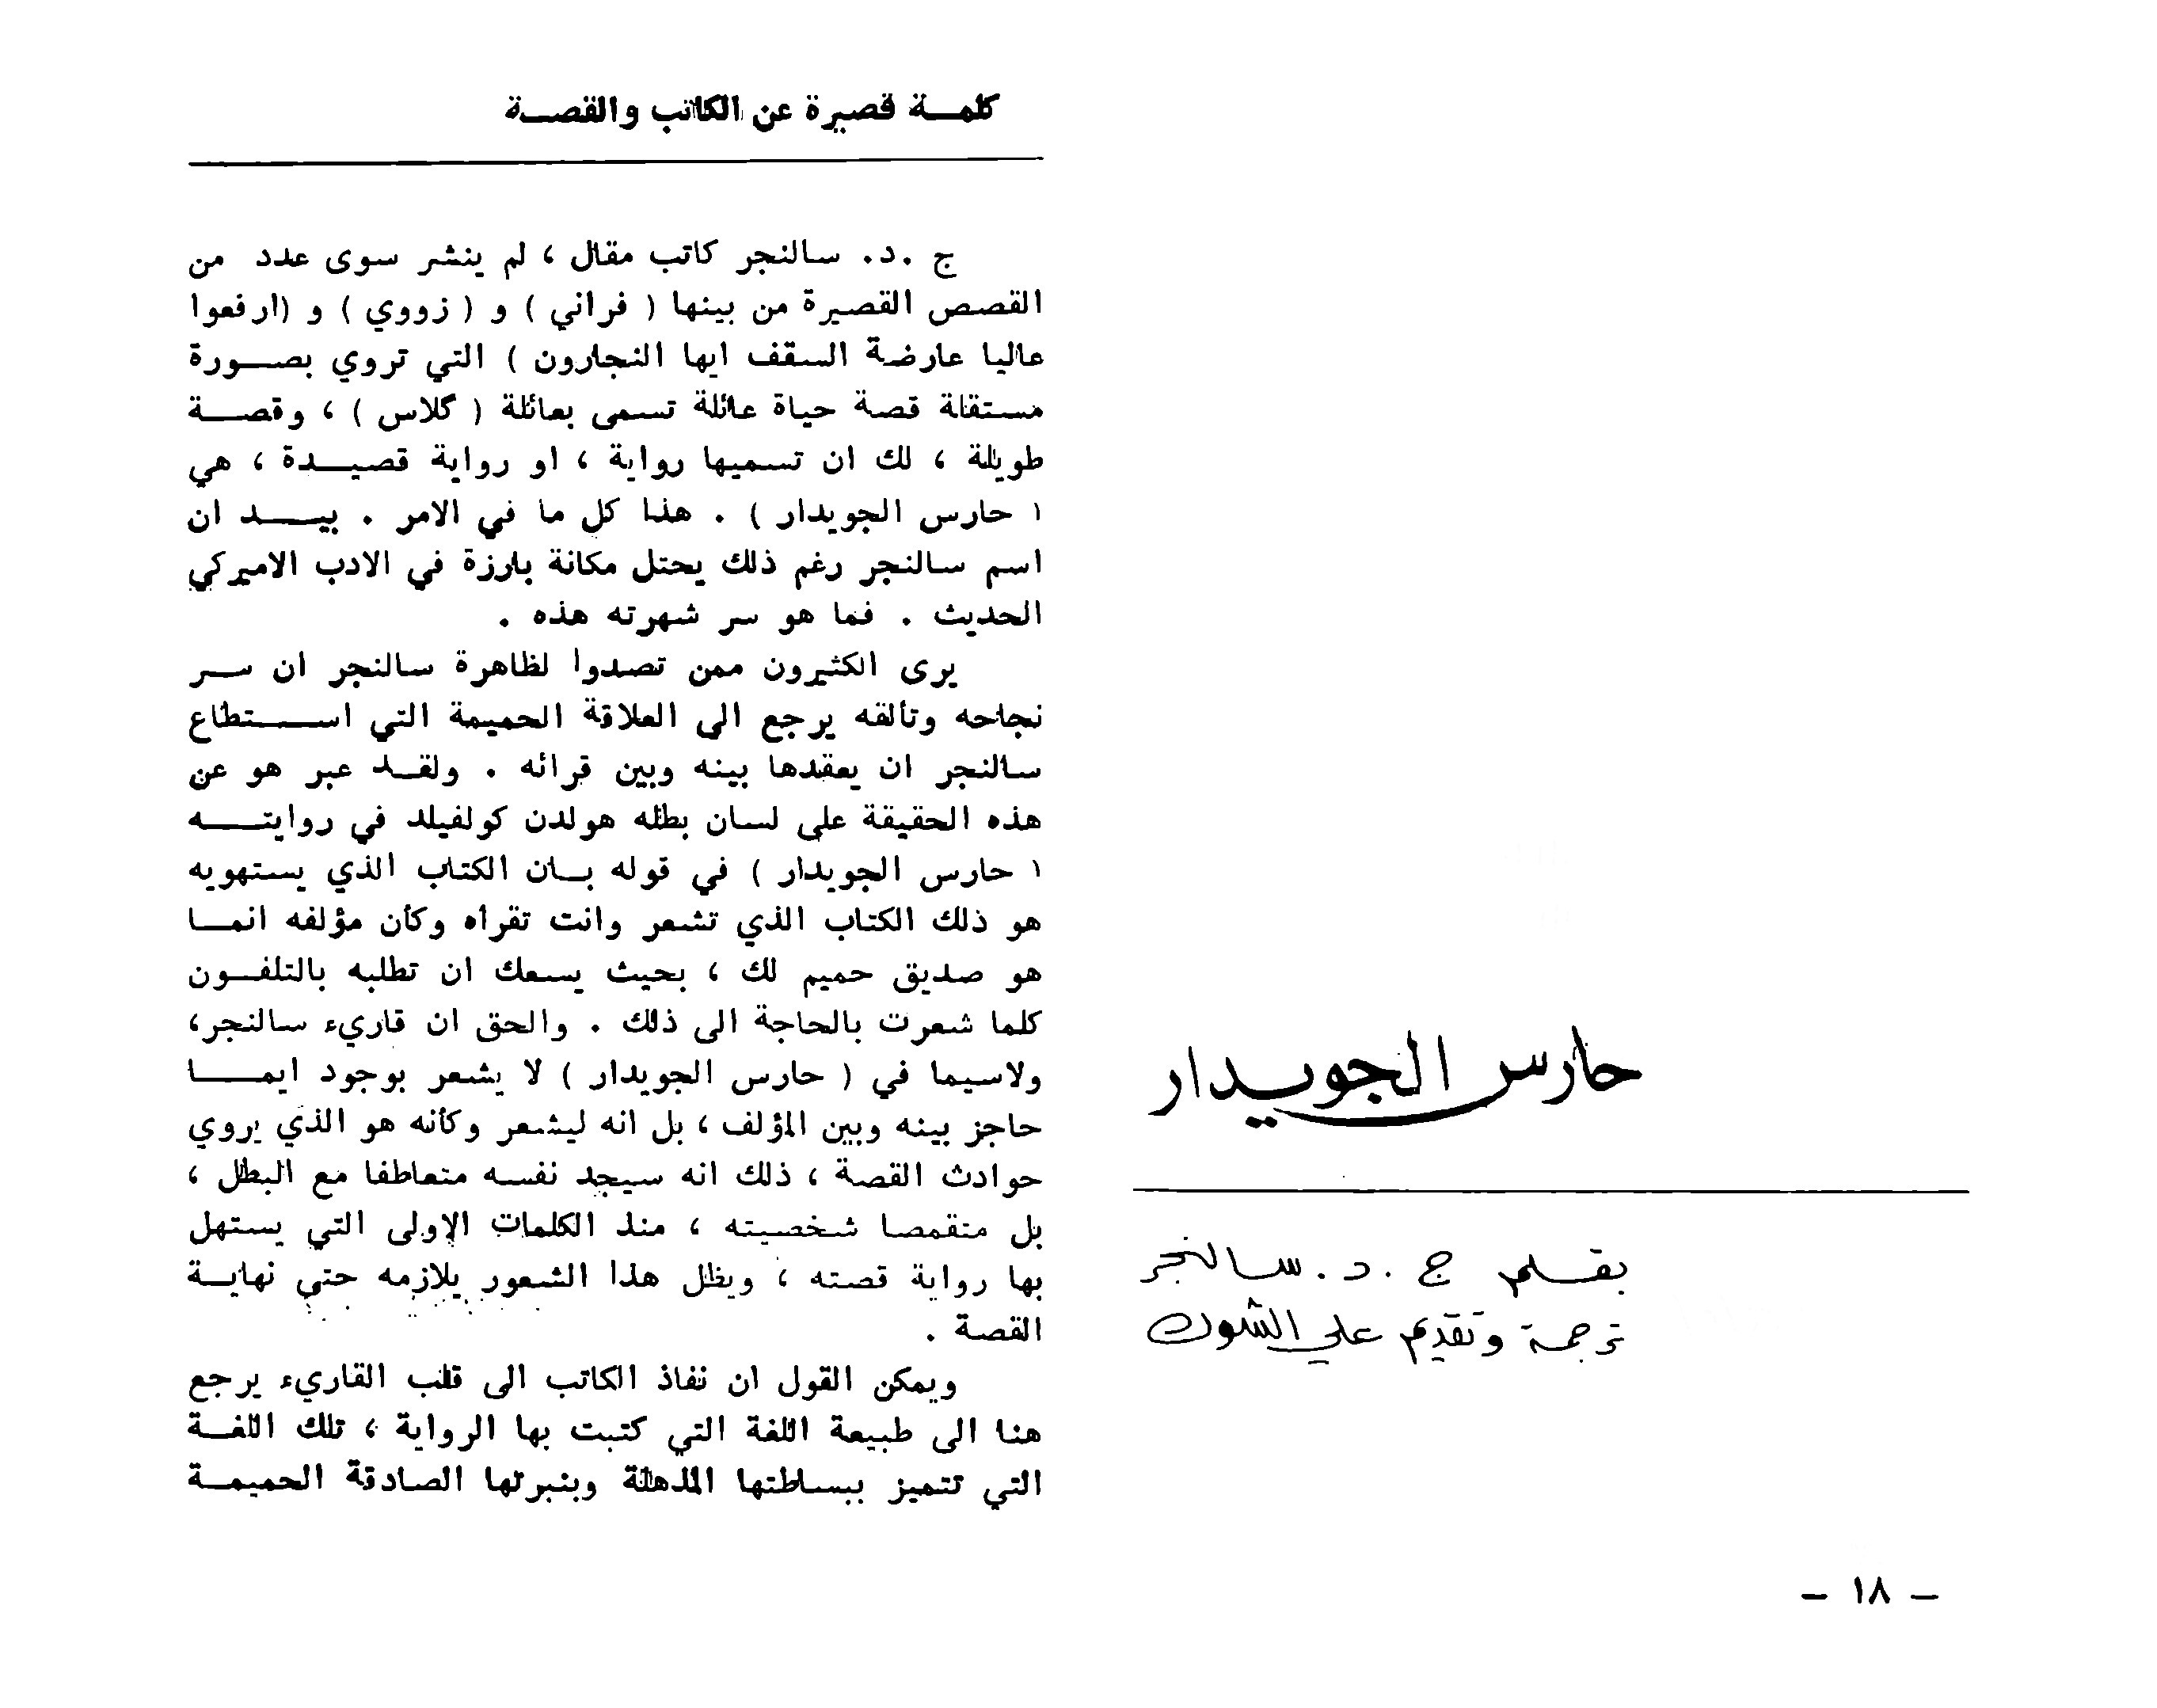 حارس الجويدار
بقلم ج . د . سالنجر
ترجمة وتقديم علي الشوك
– ١٨ –
كلمة قصيرة عن الكاتب والقصة
ج . د . سالنجر كاتب مقال ، لم ينشر سوى عدد من
القصص القصيرة من بينها ( فراني ) و ( زووي ) و (ارفعوا
عاليا عارضة السقف ايها النجارون ) التي تروي بصورة
مستقلة قصة حياة عائلة تسمى بعائلة ( گلاس ) ، وقصة
طويلة ، لك ان تسميها رواية ، او رواية قصيدة ، هي
( حارس الجويدار ) . هذا كل ما في الامر . بيد ان
اسم سالنجر رغم ذلك يحتل مكانة بارزة في الادب الاميركي
الحديث . فما هو سر شهرته هذه .
يرى الكثيرون ممن تصدوا لظاهرة سالنجر ان سر
نجاحه وتألقه يرجع الى العلاقة الحميمة التي استطاع
سالنجر ان يعقدها بينه وبين قرائه . ولقد عبر هو عن
هذه الحقيقة على لسان بطله هولدن كولفيلد في روايته
( حارس الجويدار ) في قوله بان الكتاب الذي يستهويه
هو ذلك الكتاب الذي تشعر وانت تقرأه وكأن مؤلفه انما
هو صديق حميم لك ، بحيث يسعك ان تطلبه بالتلفون
كلما شعرت بالحاجة الى ذلك . والحق ان قاريء سالنجر،
ولاسيما في ( حارس الجويدار ) لا يشعر بوجود ايما
حاجز بينه وبين المؤلف ، بل انه ليشعر وكأنه هو الذي يروي
حوادث القصة ، ذلك انه سيجد نفسه متعاطفا مع البطل ،
بل متقمصا شخصيته ، منذ الكلمات الاولى التي يستهل
بها رواية قصته ، ويظل هذا الشعور يلازمه حتى نهاية
القصة .
ويمكن القول ان نفاذ الكاتب الى قلب القاريء يرجع
هنا الى طبيعة اللغة التي كتبت بها الرواية ، تلك اللغة
التي تتميز ببساطتها المذهلة وبنبرتها الصادقة الحميمة